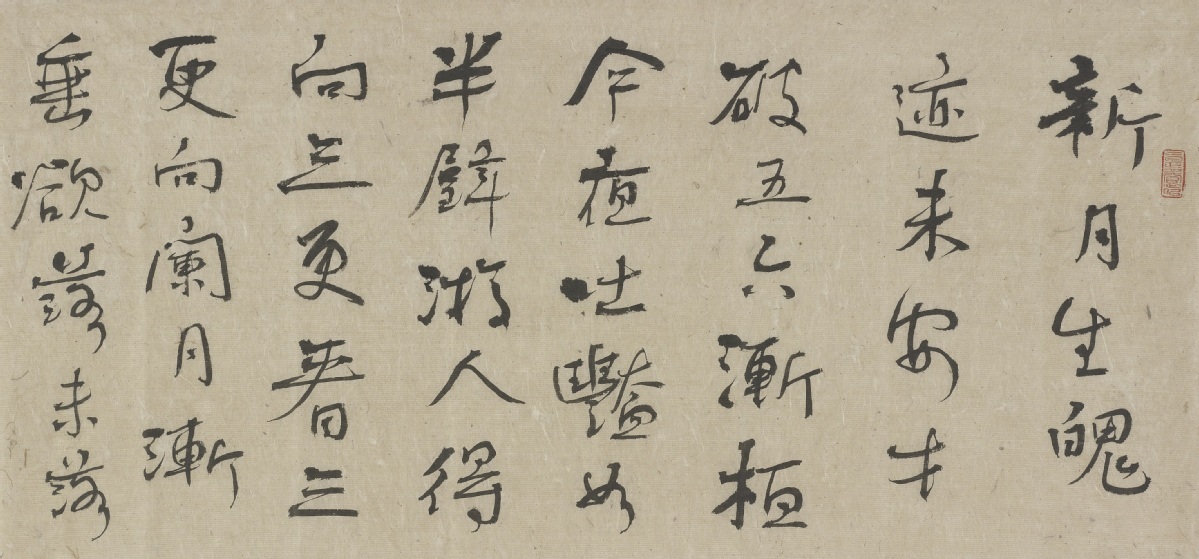 新月生魄
迹未安才
破五六漸桓
今夜吐豔如
半璧游人得
向三更看三
更向闌月漸
垂欲落未落